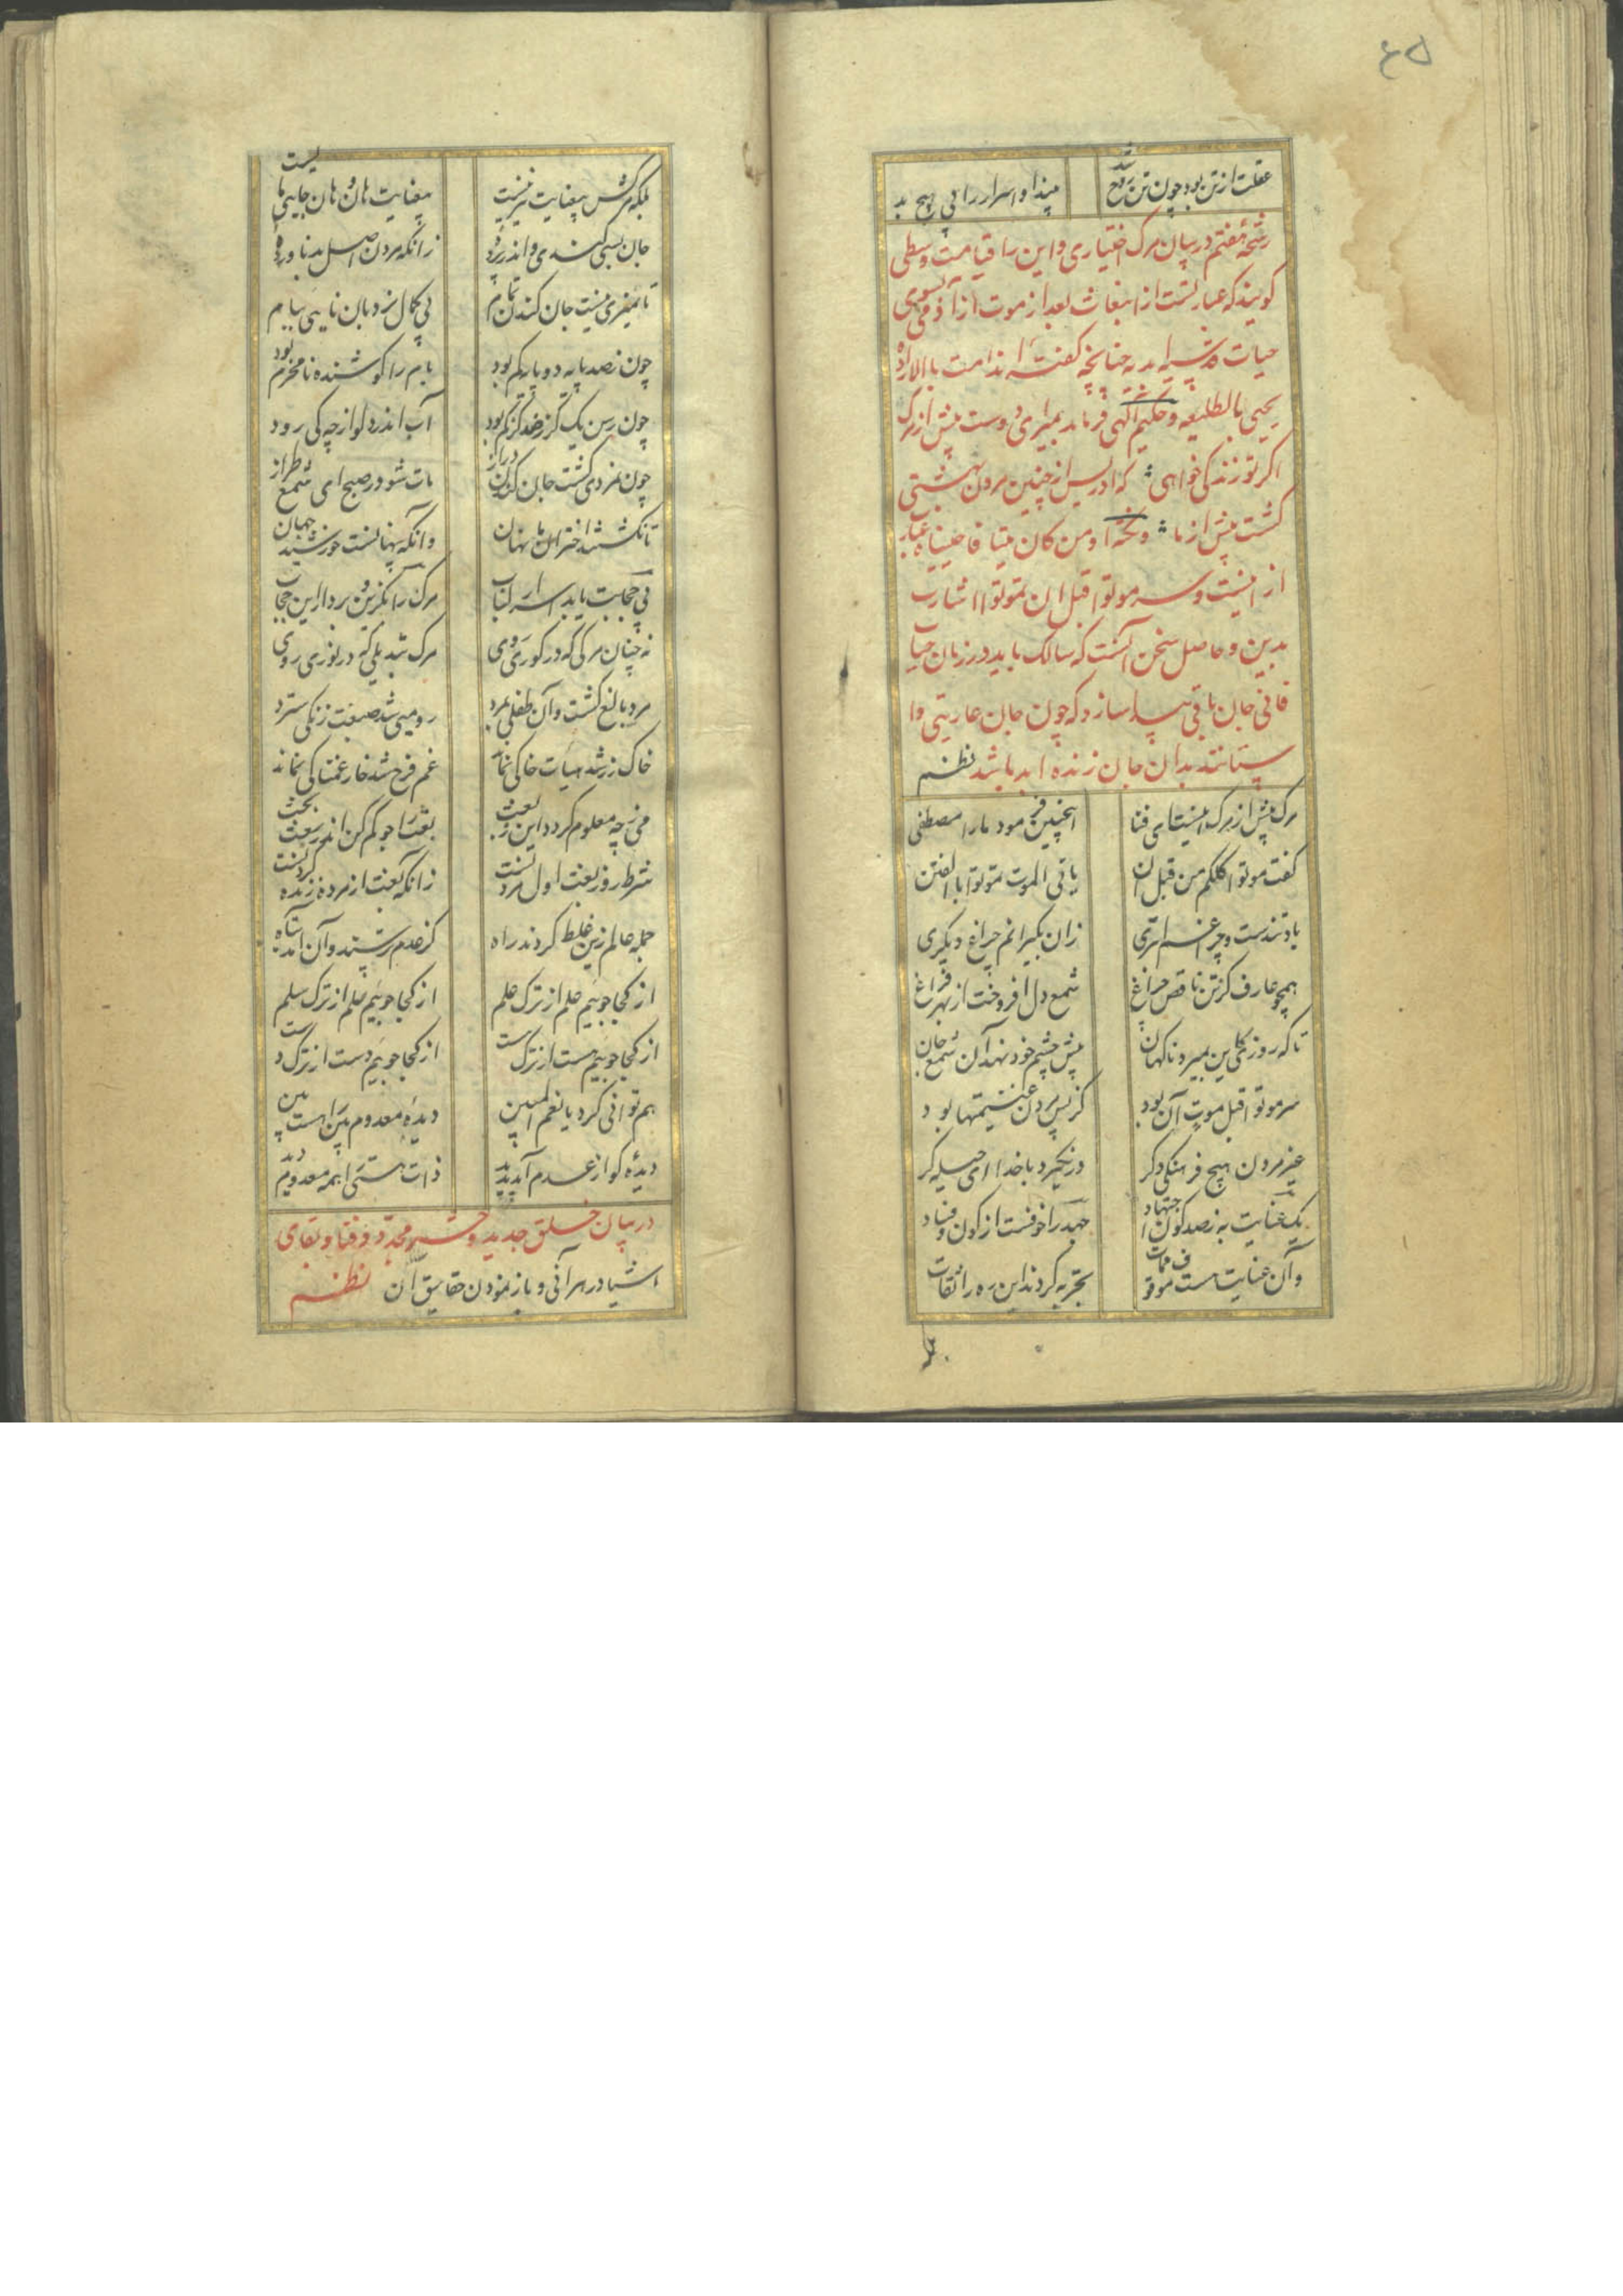 ۶۵
غفلت از تن بود چون تن روح شد
بیند او اسرار را بی هیچ بد
رشحه هفتم در بیان مرگ اختیاری و این را قیامت وسطی
گویند که عبارتست از انبعاث بعد از موت ارادی بسوی
حیات چنانچه گفته اند مت بالاراده
یحیی بالطبیعه و حکیم الهی فرماید بمیر ای دوست پیش از مرگ
اگر تو زندگی خواهی که ادریس از چنین مردن بهشتی
گشت پیش از ما و نکته او من کان میتا فاحییناه عبارت
از اینست و سر موتوا قبل ان تموتوا اشارت
بدین و حاصل سخن آنست که سالک باید در زمان حیات
فانی جان باقی پیدا سازد که چون جان عاریتی وا
ستانند بدان جان زنده ابد باشد نظم
مرگ پیش از مرگ اینست ای فتا
اینچنین فرمود ما را مصطفی
گفت موتوا کلکم من قبل ان
یاتی الموت تموتوا بالفتن
باد تندست و چراغم ابتری
زان بگیرانم چراغ دیگری
همچو عارف کز تن ناقص چراغ
شمع دل افروخت از بهر فراغ
تا که روزی کاین بمیرد ناگهان
پیش چشم خود نهد آن شمع جان
سر موتوا قبل موت آن بود
کز پس مردن غنیمتها بود
غیر مردن هیچ فرهنگی دگر
در نگیرد با خدا ای حیله گر
یک عنایت به ز صد گون اجتهاد
جهد را خوفست از کون و فساد
وآن عنایت هست موقوف ممات
تجربه کردند این ره را ثقات
بلکه
بلکه مرگش بیعنایت نیز نیست
بیعنایت هان و هان جایی مایست
جان بسی کندی و اندر پرده
زانکه مردن اصل بد ناورده
تا نمیری نیست جان کندن تمام
بی کمال نردبان نایی ببام
چون ز صد پایه دو پایه کم بود
بام را کوشنده نامحرم بود
چون رسن یک گز ز صد گز کم بود
آب اندر دلو از چه کی رود
چون نمردی گشت جان کندن دراز
مات شو در صبح ای شمع طراز
تا نگشتند اختران ما نهان
دانکه پنهانست خورشید جهان
بی حجابت باید
مرگ را بگزین و بردار این حجاب
نه چنان مرگی که در گوری روی
مرگ تبدیلی که در نوری روی
مرد بالغ گشت و آن طفلی بمرد
رومیی شد صبغت زنگی سترد
خاک زر شد هیأت خاکی نماند
غم فرح شد خار غمناکی نماند
می ز چه معلوم گردد این ز بعث
بعث را جو کم کن اندر بعث بحث
شرط روز بعث اول مردنست
زانکه بعث از مرده زنده کردنست
جمله عالم زین غلط کردند راه
کز عدم ترسند و آن آمد پناه
از کجا جوییم علم از ترک علم
از کجا جوییم سلم از ترک سلم
از کجا جوییم هست از ترک هست
از کجا جوییم دست از ترک دست
هم تو تانی کرد یا نعم المعین
دیده معدوم بین را هست بین
دیده کو از عدم آمد پدید
ذات هستی را همه معدوم دید
در بیان خلق جدید و حشر مجدد و فنا و بقای
اشیا در هر آنی و باز نمودن حقایق آن نظم